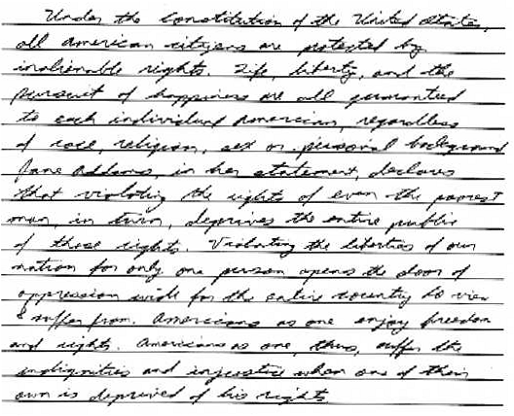 Under the Constitution of the United States,
all American citizens are protected by
inalienable rights. Life, liberty, and the
pursuit of happiness are all guaranteed
to each individual American, regardless
of race, religion, sex or personal background
Jane Addams, in her statement, declares
that violating the rights of even the poorest
man, in turn, deprives the entire public
of those rights. Violating the liberties of our
nation for only one person opens the door of
oppression wide for the entire country to view
& suffer from. Americans as one enjoy freedom
and rights. Americans as one, thus, suffer the
indignities and injustice when one of their
own is deprived of his rights.